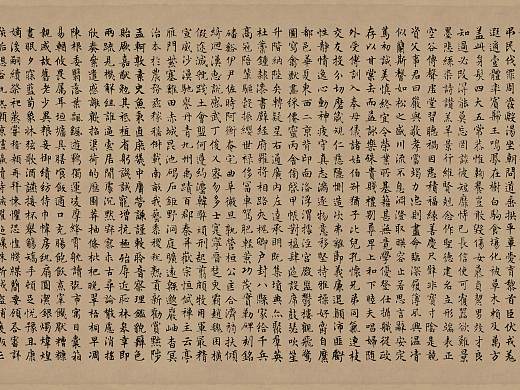 弔民伐罪周發殷湯坐朝問道垂拱平章愛育黎首臣伏戎羌
遐邇壹體率賓歸王鳴鳳在樹白駒食場化被草木賴及萬方
蓋此身髮四大五常恭惟鞠養豈敢毀傷女慕貞絜男效才良
知過必改得能莫忘罔談彼短靡恃己長信使可覆器欲難量
墨悲絲染詩讚羔羊景行維賢克念作聖德建名立形端表正
空谷傳聲虛堂習聽禍因惡積福緣善慶尺璧非寶寸陰是競
資父事君曰嚴與敬孝當竭力忠則盡命臨深履薄夙興溫凊
似蘭斯馨如松之盛川流不息淵澄取暎容止若思言辭安定
篤初誠美慎終宜令榮業所基藉甚無竟學優登仕攝職從政
存以甘棠去而益詠樂殊貴賤禮別尊卑上和下睦夫唱婦隨
外受傅訓入奉母儀諸姑伯叔猶子比兒孔懷兄弟同氣連枝
交友投分切磨箴規仁慈隱惻造次弗離節義廉退顛沛匪虧
性靜情逸心動神疲守真志滿逐物意移堅持雅操好爵自縻
都邑華夏東西二京背邙面洛浮渭據涇宮殿盤鬱樓觀飛驚
圖寫禽獸畫綵仙靈丙舍傍啟甲帳對楹肆筵設席鼓瑟吹笙
升階納陛弁轉疑星右通廣內左達承明既集墳典亦聚群英
杜稾鍾隸漆書壁經府羅將相路俠槐卿戶封八縣家給千兵
高冠陪輦驅轂振纓世祿侈富車駕肥輕策功茂實勒碑刻銘
磻溪伊尹佐時阿衡奄宅曲阜微旦孰營桓公匡合濟弱扶傾
綺迴漢惠說感武丁俊乂密勿多士寔寧晉楚更霸趙魏困橫
假途滅虢踐土會盟何遵約法韓弊煩刑起翦頗牧用軍最精
宣威沙漠馳譽丹青九州禹跡百郡秦并嶽宗恒岱禪主云亭
雁門紫塞雞田赤城昆池碣石鉅野洞庭曠遠綿邈巖岫杳冥
治本於農務茲稼穡俶載南畝我藝黍稷稅熟貢新勸賞黜陟
孟軻敦素史魚秉直庶幾中庸勞謙謹敕聆音察理鑑貌辨色
貽厥嘉猷勉其祗植省躬譏誡寵增抗極殆辱近恥林皋幸即
兩疏見機解組誰逼索居閒處沉默寂寥求古尋論散慮逍遙
欣奏累遣慼謝歡招渠荷的歷園莽抽條枇杷晚翠梧桐早凋
陳根委翳落葉飄颻遊鵾獨運凌摩絳霄耽讀翫市寓目囊箱
易輶攸畏屬耳垣墻具膳飡飯適口充腸飽飫烹宰飢厭糟糠
親戚故舊老少異糧妾御績紡侍巾帷房紈扇圓潔銀燭煒煌
晝眠夕寐藍筍象床弦歌酒讌接杯舉觴矯手頓足悅豫且康
嫡後嗣續祭祀蒸嘗稽顙再拜悚懼恐惶牋牒簡要顧答審詳
骸垢想浴執熱願涼驢騾犢特駭躍超驤誅斬賊盜捕獲叛亡